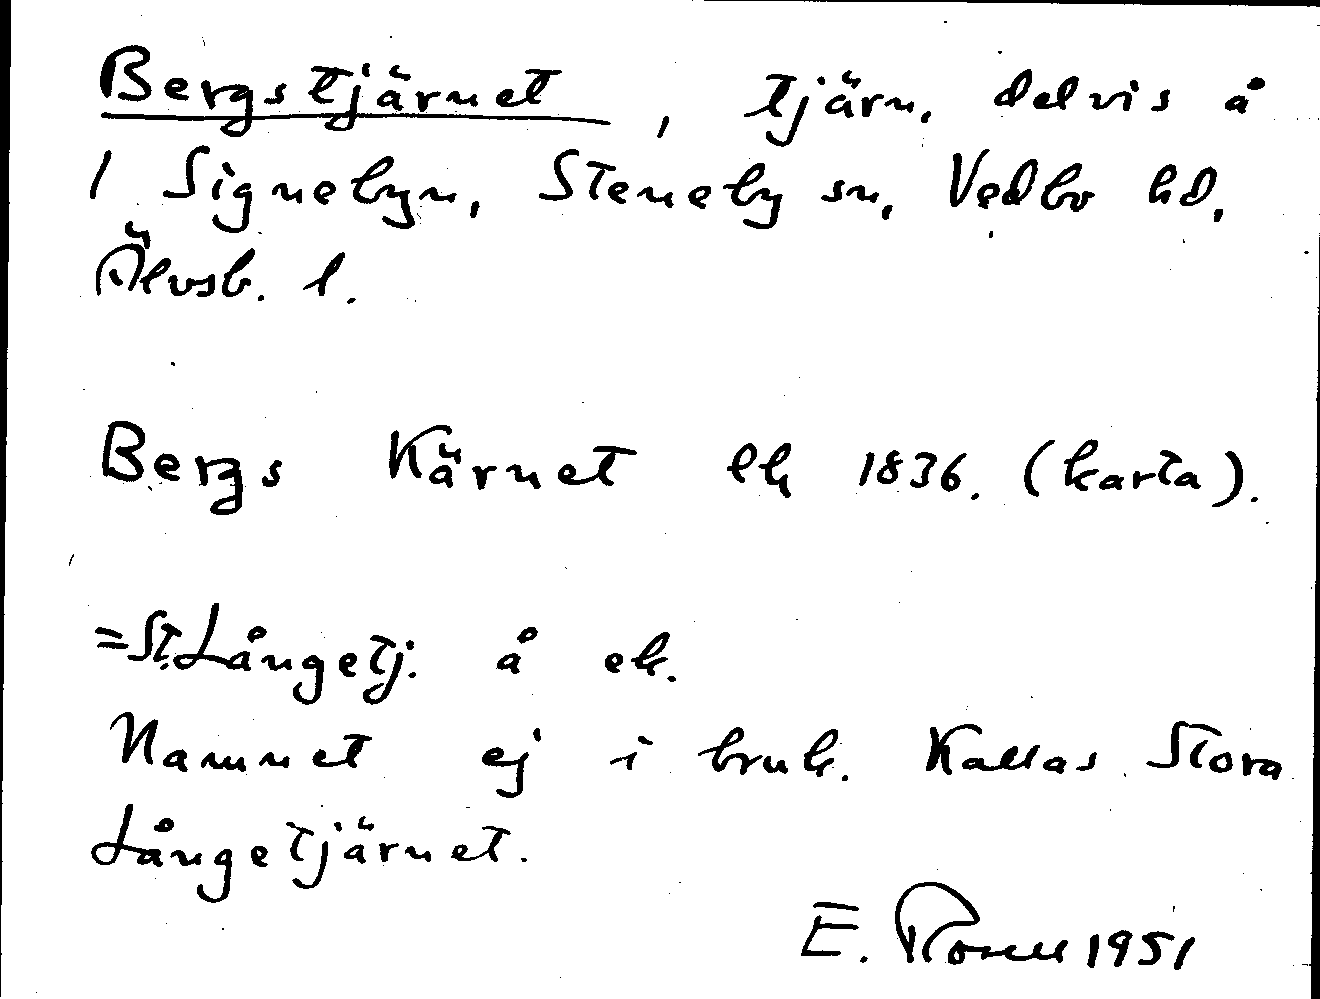 Bergstjärnet, tjärn, delvis å
1 Signebyn, Steneby sn, Vedbo hd,
Älvsb. l.
Bergs Kärnet ek 1836. (karta).
=St.Långetj. å ek.
Namnet ej i bruk. Kallas Stora
Långetjärnet.
E. Rosell 1951